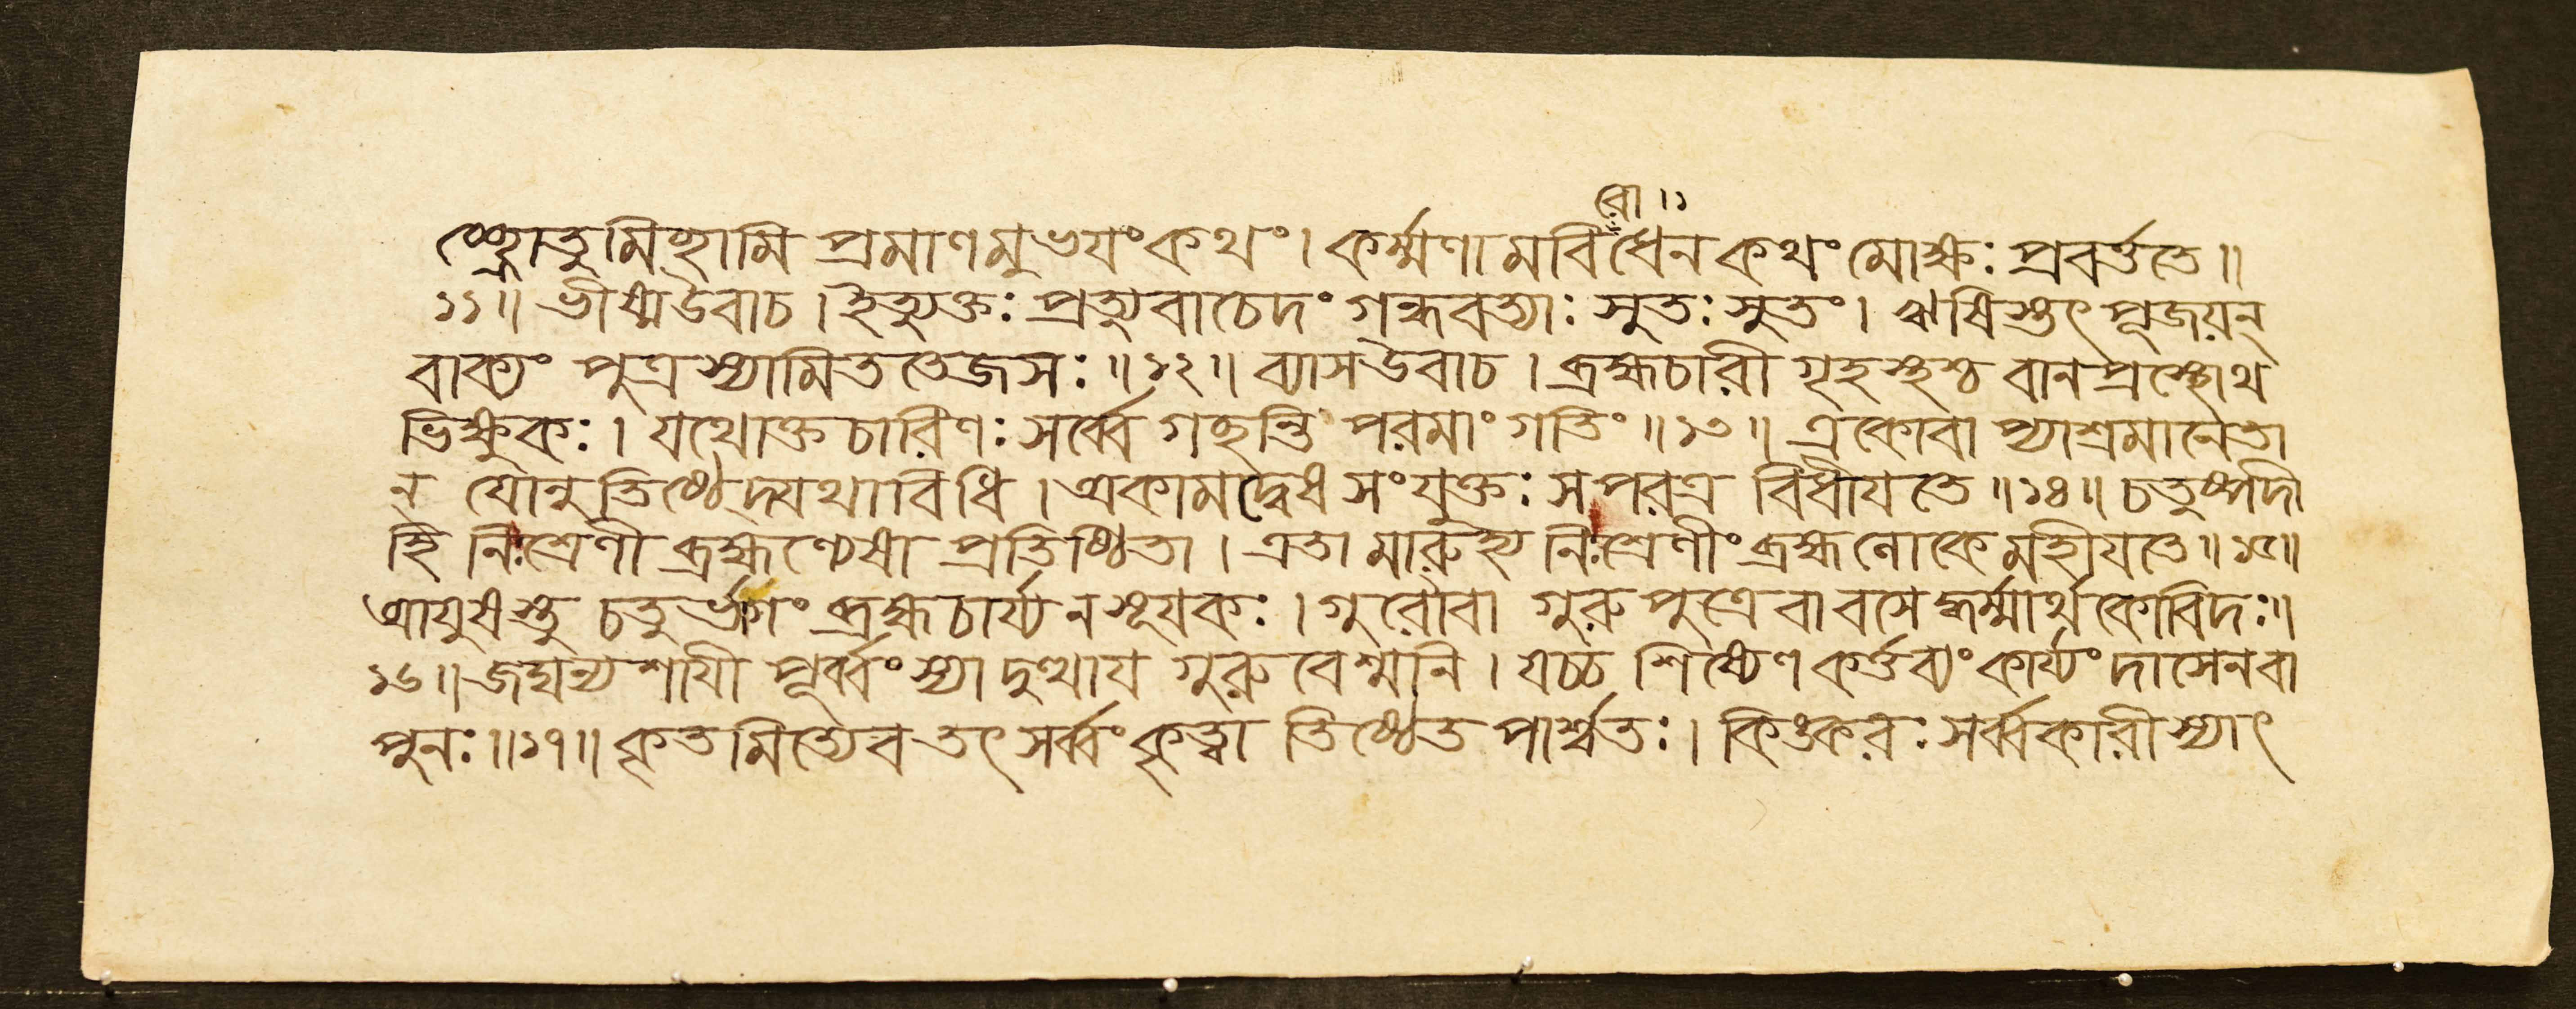 রো ।১
চ্ছ্রোতুমিচ্ছামি প্রমাণমুভযং কথং । কর্ম্মণামবিধেন কথং মোক্ষঃ প্রবর্ত্ততে ॥
১১॥ ভীষ্মউবাচ । ইত্যুক্তঃ প্রত্যুবাচেদং গন্ধবত্যাঃ সুতঃ সুতং । ঋষিস্তৎ পূজয়ন্
বাক্যং পুত্রস্যামিততেজসঃ ॥১২॥ ব্যাসউবাচ । ব্রহ্মচারী গৃহস্থশ্চ বানপ্রস্থোথ
ভিক্ষুকঃ । যথোক্তচারিণঃ সর্ব্বে গচ্ছন্তি পরমাং গতিং ॥১৩॥ একোবা প্যাশ্রমানেতা
ন্ যোনুতিষ্ঠেদ্যথাবিধি । অকামদ্বেষসংযুক্তঃ সপরত্র বিধীযতে ॥১৪॥ চতুষ্পদী
হি নিঃশ্রেণী ব্রহ্মণ্যেষা প্রতিষ্ঠিতা । এতামারুহ্য নিঃশ্রেণীং ব্রহ্মলোকে মহীযতে ॥১৫॥
আযুষস্তু চতুর্ভাগং ব্রহ্মচার্য্যনসূযকঃ । গুরৌবা গুরুপুত্রেবা বসেদ্ধর্ম্মার্থকোবিদঃ ॥
১৬॥ জঘন্যশাযী পূর্ব্বং স্যাদুত্থায গুরুবেশ্মনি । যচ্চ শিষ্যেণ কর্ত্তব্যং কার্য্যং দাসেনবা
পুনঃ ॥১৭॥ কৃতমিত্যেব তৎ সর্ব্বং কৃত্বা তিষ্ঠেত পার্শ্বতঃ । কিঙ্করঃ সর্ব্বকারী স্যাৎ